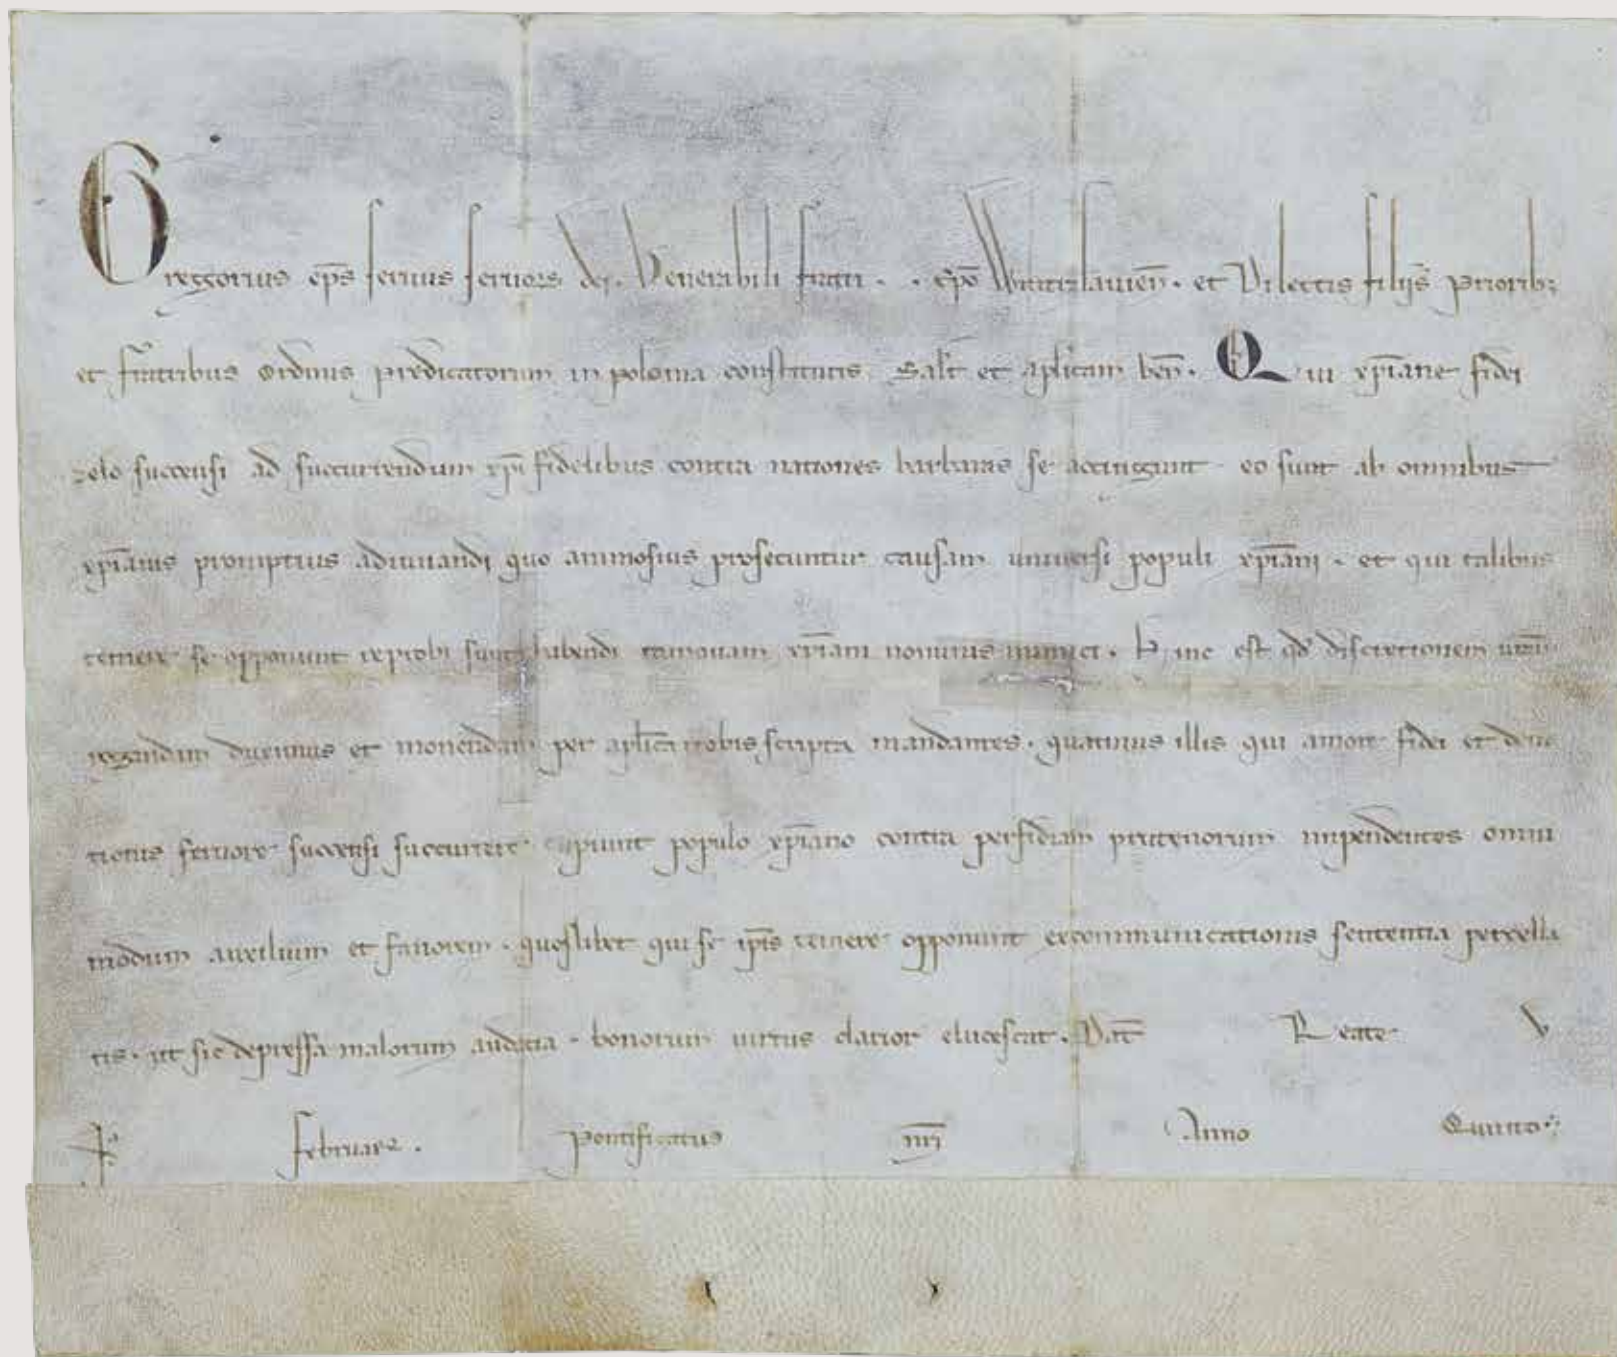 Gregorius ep̄s seruus seruor̄ dei. Venerabili fratri . . ep̄o Wratizlauien̄. et Dilectis filijs Priorib;
et fr̄atribus Ordinis predicatorum in polonia constitutis Sal̄t et apl̄icam ben̄. Qui xp̄iane fidei
zelo succensi ad succurrendum xp̄i fidelibus contra nationes barbaras se accingunt. eo sunt ab omnibus
xp̄ianis promptius adiuuandi quo animosius prosecuntur causam uniuersi populi xp̄iani. et qui talibus
temere se opponunt reprobi sunt habendi tamquam xp̄iani nominis inimici. Hinc est qd̄ discretionem ur̄am
rogandam duximus et monendam per apl̄ica uobis scripta mandantes. quatinus illis qui amore fidei et deuo
tionis feruore succensi succurrere cupiunt populo xp̄iano contra perfidiam prutenorum impendentes omni
modum auxilium et fauorem. quoslibet qui se ip̄is temere opponunt excommunicationis sententia percella
tis. ut sic depressa malorum audacia. bonorum uirtus clarior elucescat. Dat̄ Reate V
kl̄ februarii. Pontificatus nr̄i Anno Quinto.